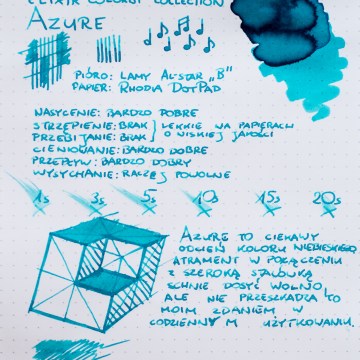 COLLECTION
AZURE
PIÓRO: LAMY ALSTAR „B"
PAPIER: RHODIA DOTPAD
NASYCENIE: BARDZO DOBRE
STRZĘPIENIE: BRAK } LEKKIE NA PAPIERACH
PRZEBIJANIE: BRAK } O NISKIEJ JAKOŚCI
CIENIOWANIE: BARDZO DOBRE
PRZEPŁYW: BARDZO DOBRY
WYSYCHANIE: RACZEJ POWOLNE
1s 3s 5s 10s 15s 20s
AZURE TO CIEKAWY
ODCIEŃ KOLORU NIEBIESKIEGO,
ATRAMENT W POŁĄCZENIU
Z SZEROKĄ STALÓWKĄ
SCHNIE DOSYĆ WOLNO,
ALE NIE PRZESZKADZA TO
MOIM ZDANIEM W
CODZIENNYM UŻYTKOWANIU.